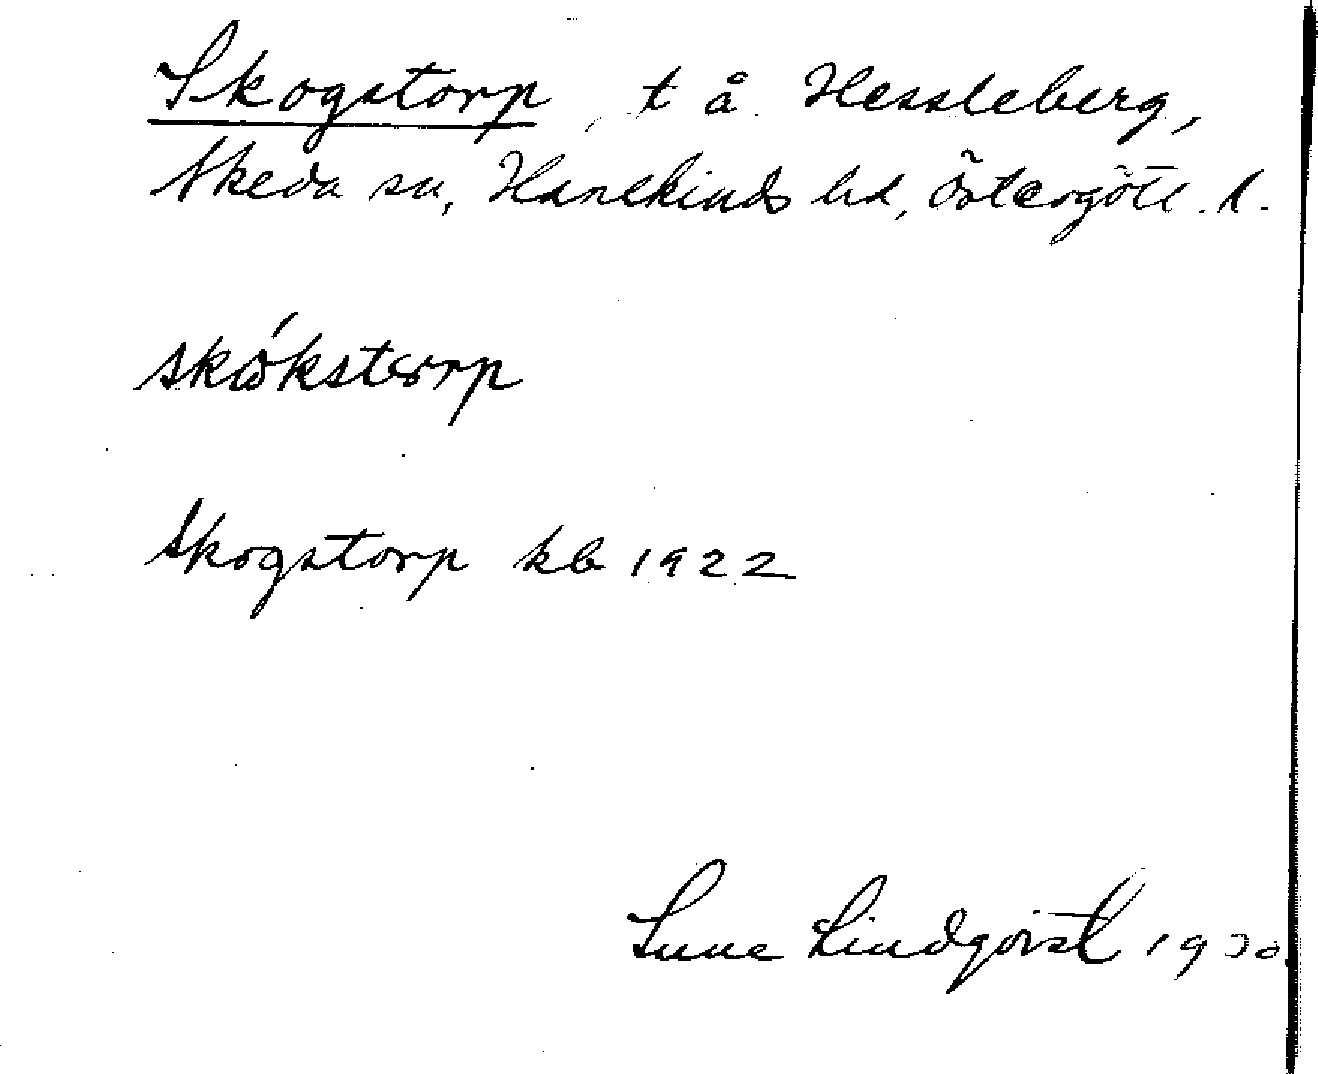 Skogstorp, t å Hessleberg,
Skeda sn, Hanekinds hd, Östergötl. l.
skókstorp
Skogstorp kb 1922
Sune Lindqvist 19